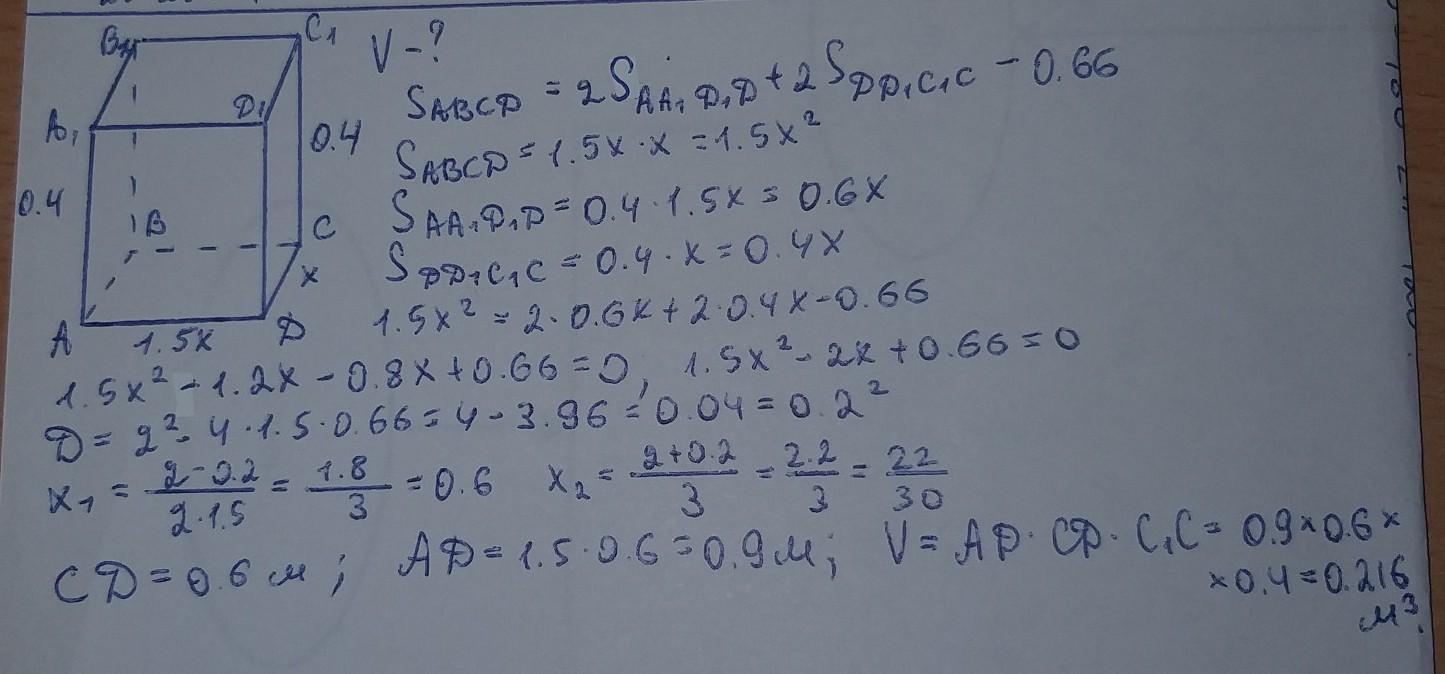 B₁
C₁
V-?
S_ABCD = 2S_AA₁D₁D + 2S_DD₁C₁C - 0.66
A₁
D₁
0.4
S_ABCD = 1.5x·x = 1.5x²
0.4
S_AA₁D₁D = 0.4·1.5x = 0.6x
B
C
S_DD₁C₁C = 0.4·x = 0.4x
x
A
1.5x
D
1.5x² = 2·0.6x + 2·0.4x - 0.66
1.5x² - 1.2x - 0.8x + 0.66 = 0, 1.5x² - 2x + 0.66 = 0
D = 2² - 4·1.5·0.66 = 4 - 3.96 = 0.04 = 0.2²
x₁ = (2-0.2)/(2·1.5) = 1.8/3 = 0.6 x₂ = (2+0.2)/3 = 2.2/3 = 22/30
CD = 0.6 м; AD = 1.5·0.6 = 0.9 м; V = AD·CD·C₁C = 0.9×0.6×
×0.4 = 0.216
м³.